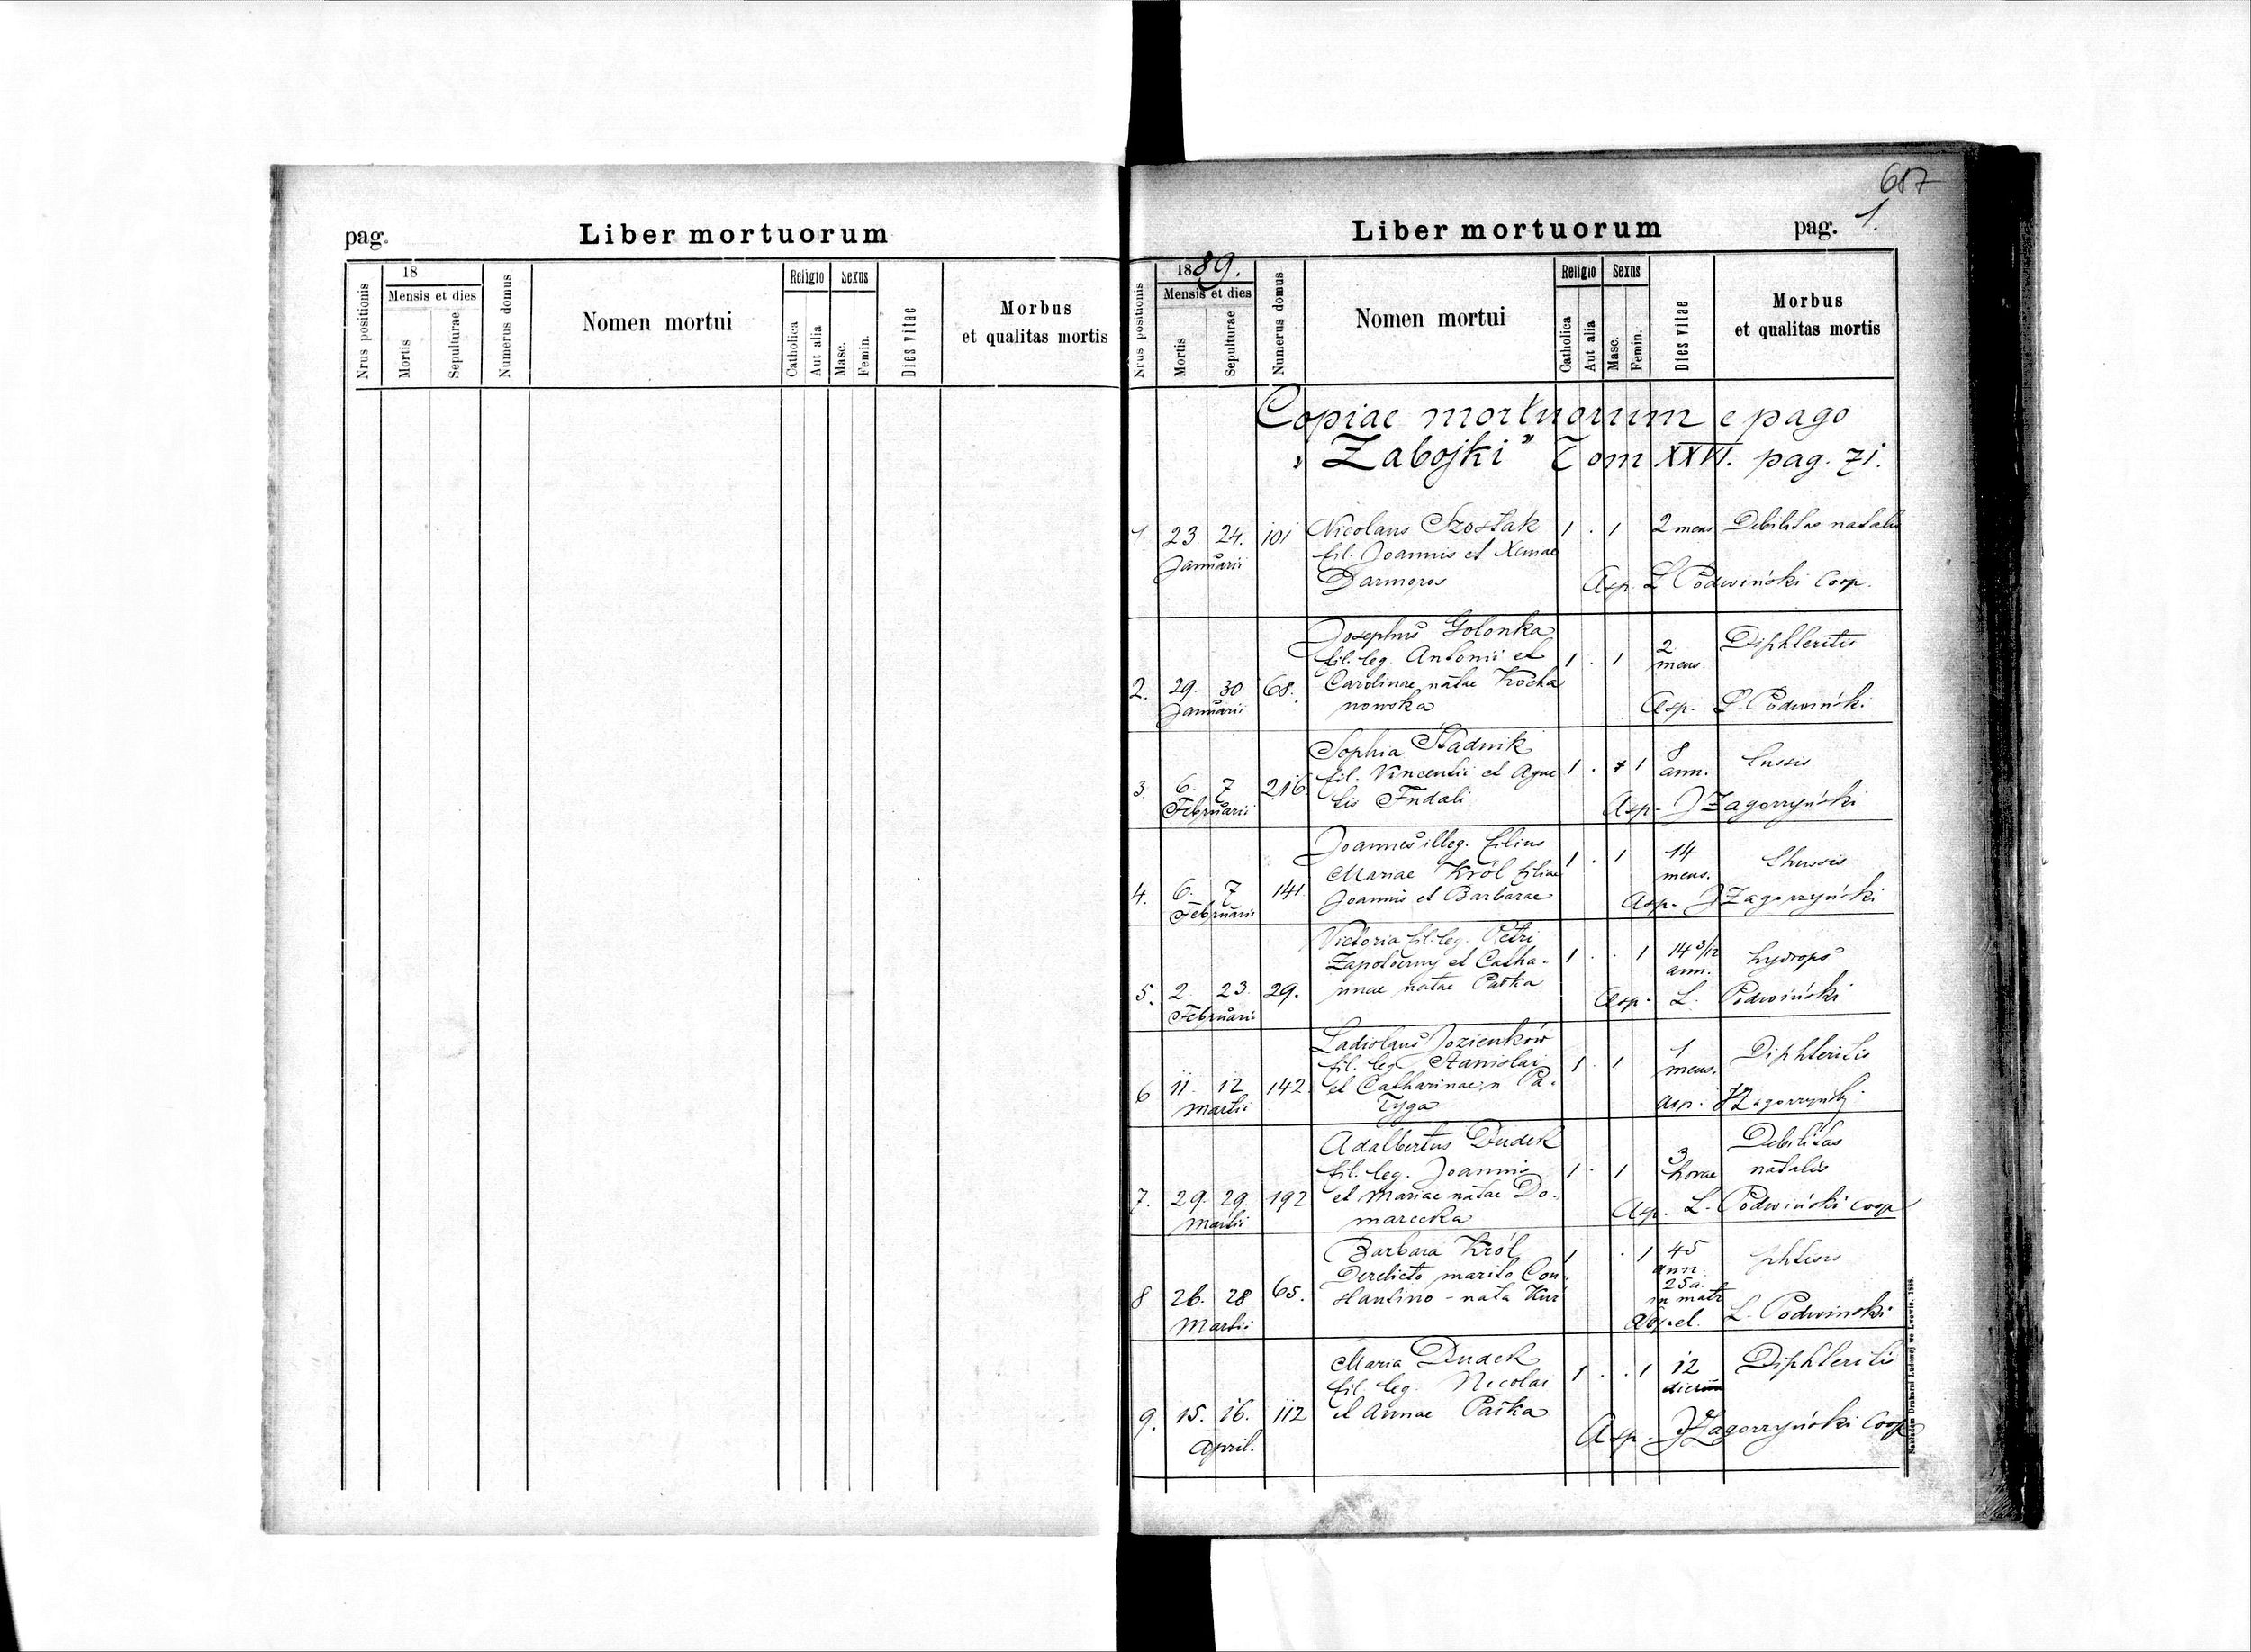 pag.
Liber mortuorum
Nrus positionis
18
Mensis et dies
Mortis
Sepulturae
Numerus domus
Nomen mortui
Religio
Catholica
Aut alia
Sexus
Masc.
Femin.
Dies vitae
Morbus
et qualitas mortis
617
Liber mortuorum
pag. 1.
Nrus positionis
1889.
Mensis et dies
Mortis
Sepulturae
Numerus domus
Nomen mortui
Religio
Catholica
Aut alia
Sexus
Masc.
Femin.
Dies vitae
Morbus
et qualitas mortis
Copiae mortuorum e pago
"Zabojki" Tom XXVI. pag. 71.
1. 23 24. 101 Nicolaus Szostak 1 . 1 2 mens Debilitas natalis
Januarii fil. Joannis et Xeniae
Darmoros Asp. L Podwiński Coop.
Josephus Golonka
fil. leg. Antonii et 1 . 1 2 mens. Diphteritis
2. 29. 30 68. Carolinae natae Kocha
Januarii nowska Asp. L. Podwińsk.
Sophia Stadnik
3. 6. 7 216 fil. Vincentii et Agne 1 . 1 8 ann. tussis
Februarii tis Fndali Asp. J Zagorzyński
Joannes illeg. filius
4. 6. 7 141. Mariae Król filiae 1 . 1 14 mens. thussis
Februarii Joannis et Barbarae Asp. J Zagorzyński
Victoria fil. leg. Petri
Zapotoczny et Catha- 1 . . 1 14 3/12 ann. hydrops
5. 2 23 29. rinae natae Paśka Asp. L. Podwiński
Februarii
Ladislaus Jozienków
fil. leg. Stanislai 1 . 1 1 mens. Diphteritis
6 11. 12 142. et Catharinae n. Pa-
Martii tyga Asp. J Zagorzyński
Adalbertus Dudek Debilitas
fil. leg. Joannis 1 . 1 3 horae natalis
7. 29. 29. 192 et Mariae natae Do-
Martii marecka Asp. L. Podwiński coop
Barbara Król 1 . 1 45 ann. phtisis
Derelicto marito Con- 25 a.
8 26. 28 65. stantino - nata Kur in matr
Martii L. Podwinski
Maria Dudek
fil leg. Nicolai 1 . . 1 12 dierum Diphteritis
9. 15. 16. 112 et Annae Paśka
April. Asp. J Zagorzyński Coop
Nakładem Drukarni Ludowej we Lwowie. 1888.